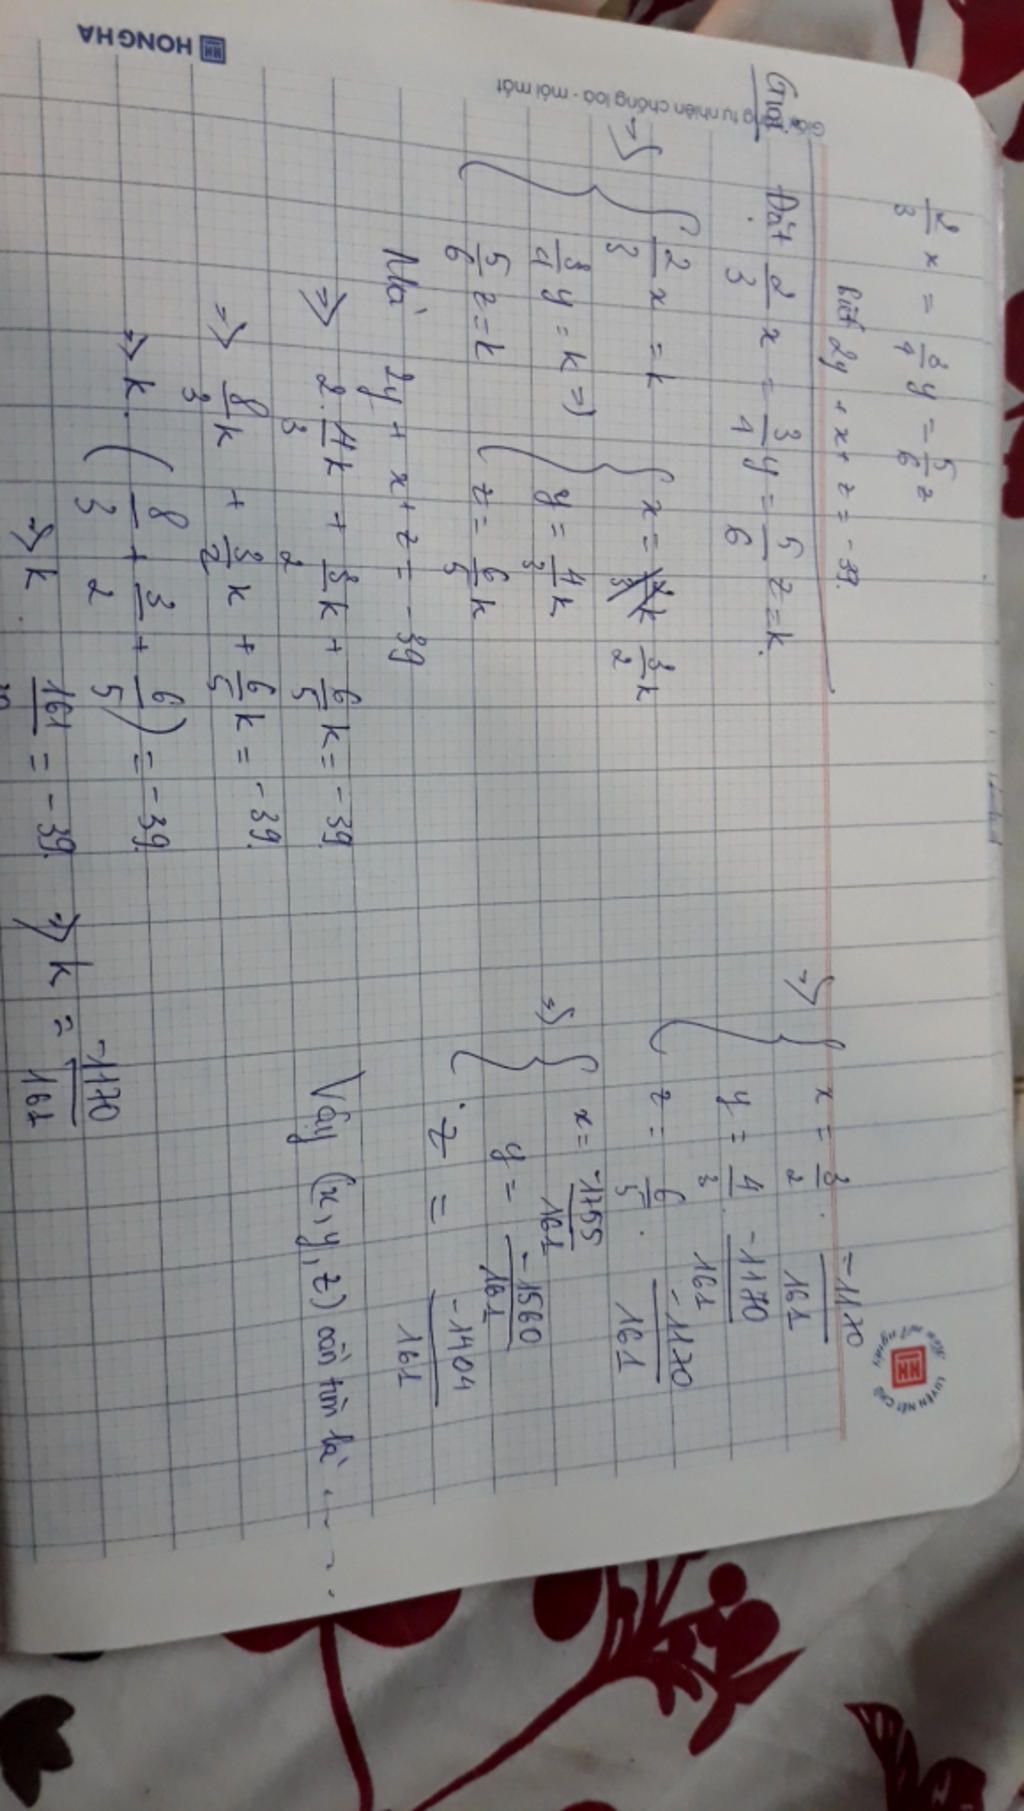 HONG HA
2/3 x = 3/4 y = 5/6 z
biết 2y + x + z = -39.
Giải
Đặt 2/3 x = 3/4 y = 5/6 z = k.
=> { 2/3 x = k
3/4 y = k =>
5/6 z = k
{ x = 3/2 k
y = 4/3 k
z = 6/5 k
Mà 2y + x + z = -39
=> 2. 4/3 k + 3/2 k + 6/5 k = -39.
=> 8/3 k + 3/2 k + 6/5 k = -39.
=> k. ( 8/3 + 3/2 + 6/5 ) = -39.
=> k. 161/30 = -39. => k = -1170/161
=> { x = 3/2 . -1170/161
y = 4/3 . -1170/161
z = 6/5 . -1170/161
=> { x = -1755/161
y = -1560/161
z = -1404/161
Vậy (x, y, z) cần tìm là ....
LUYỆN NÉT CHỮ